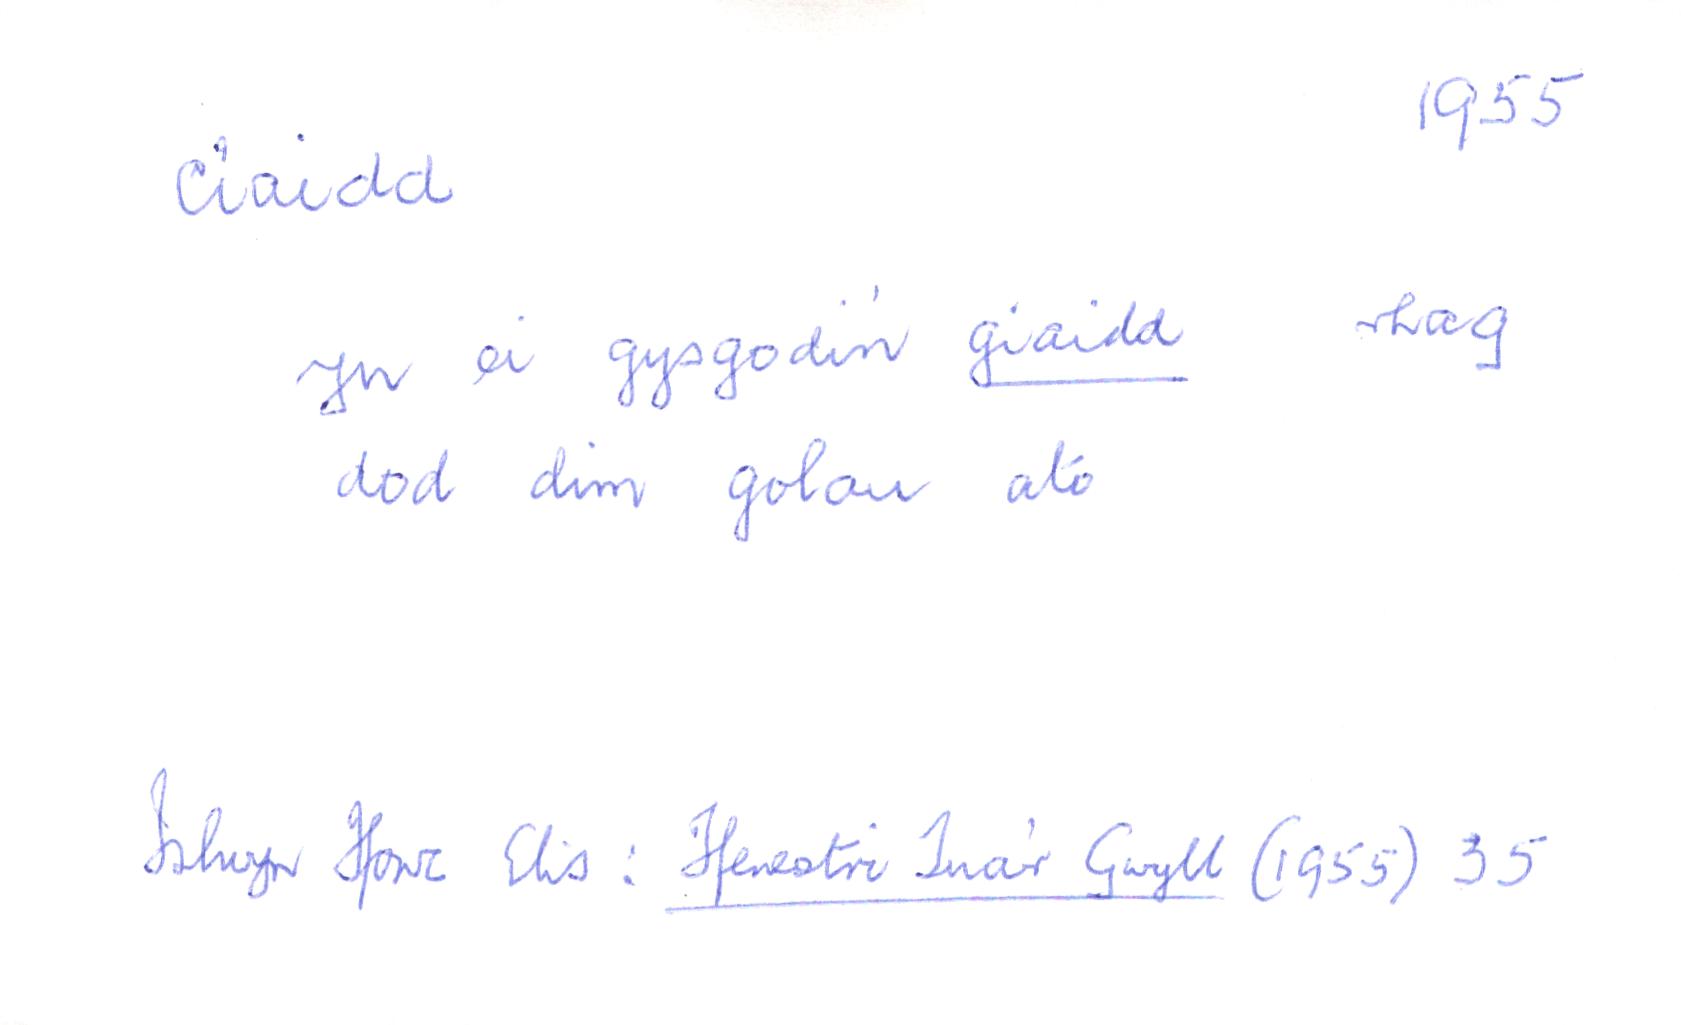 1955
Ciaidd
yn ei gysgodi'n giaidd rhag
dod dim golau ato
Islwyn Ffowc Elis : Ffenestri Tua'r Gwyll (1955) 35